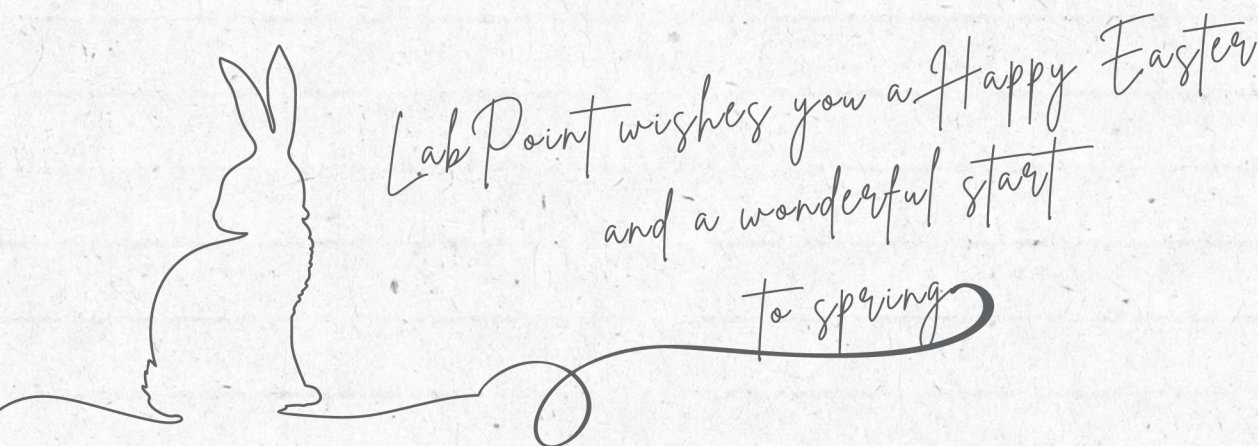 LabPoint wishes you a Happy Easter
and a wonderful start
to spring